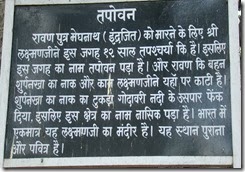 तपोवन
रावण पुत्र मेघनाथ (इंद्रजित) को मारने के लिए श्री
लक्ष्मणजीने इस जगह १२ साल तपश्चर्या कि है। इसलिए
इस जगह का नाम तपोवन पड़ा है। और रावण कि बहन
शुर्पनखा का नाक और कान लक्ष्मणजीने यहाँ पर काटी है।
शुर्पनखा का नाक का टुकड़ा गोदावरी नदी के उसपार फेंक
दिया, इसलिए इस क्षेत्र का नाम नासिक पड़ा है। भारत में
एकमात्र यह लक्ष्मणजी का मंदीर है। यह स्थान पुराना
और पवित्र है।